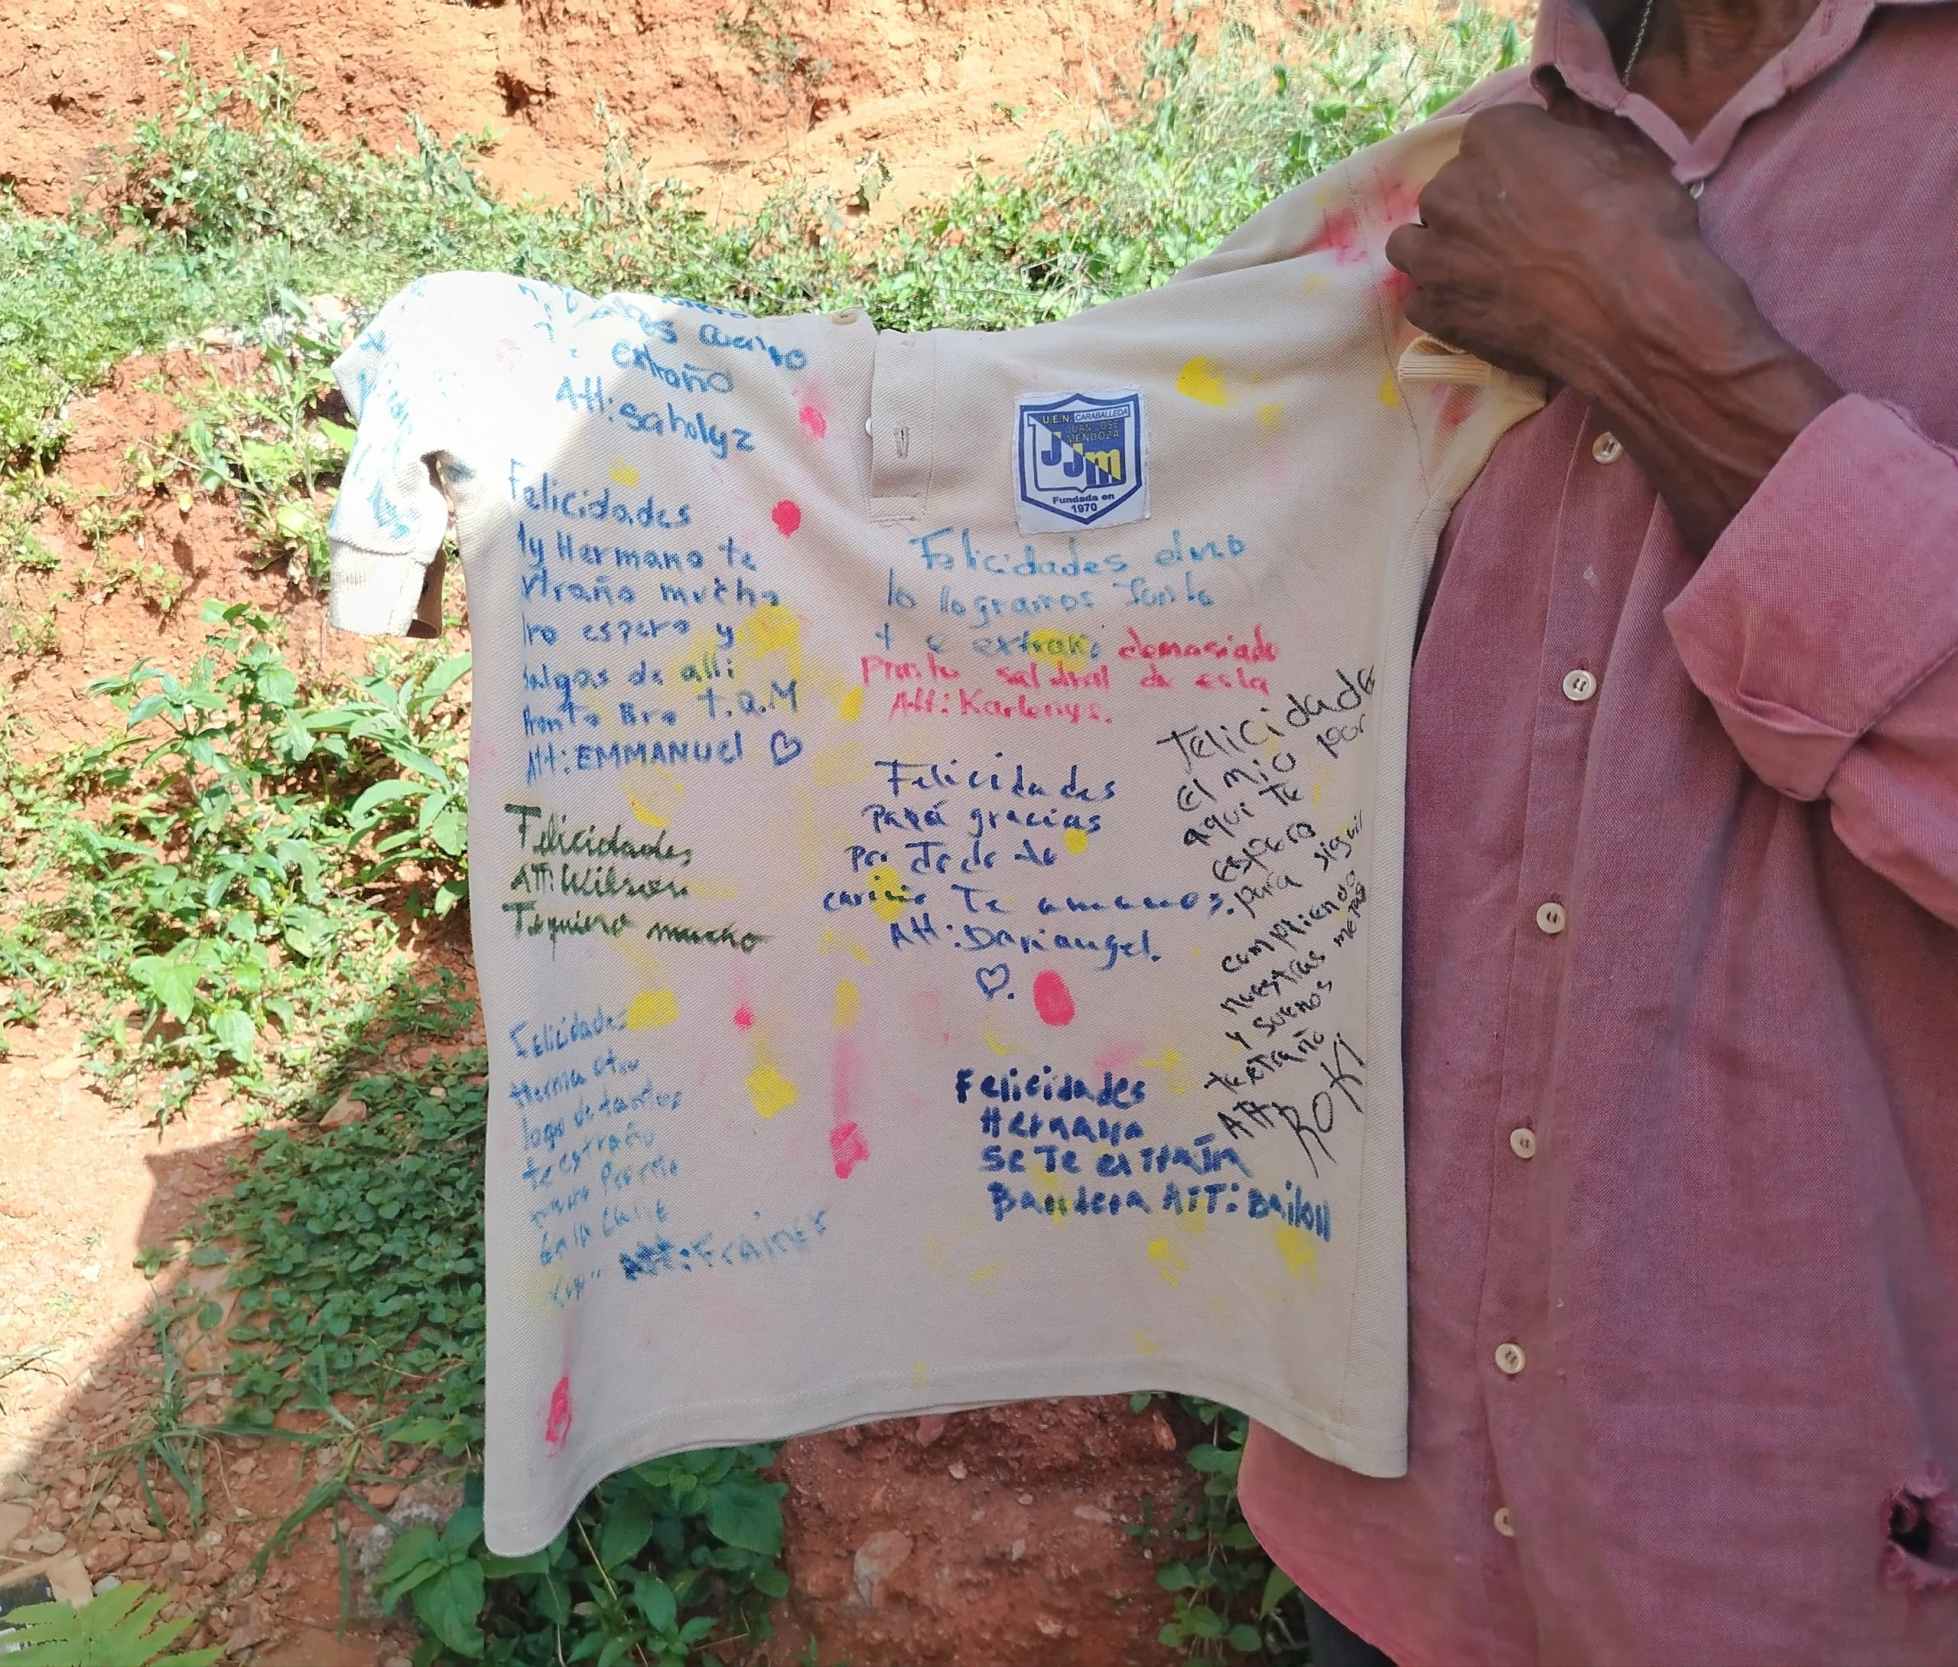 extraño
Att: Saholyz
U.E.N. CARABALLEDA
JUAN JOSE
MENDOZA
JJm
Fundada en
1970
Felicidades
My Hermano te
xtraño mucho
ro espero y
Salgas de alli
Pronto Bro T.Q.M
Att: EMMANUEl
Felicidades elmio
lo logramos Junto
te extraño demaciado
Pronto saldral de esta
Att: Karlenys.
Felicidades
Att: Wilson
Tequiero mucho
Felicidades
Papá gracias
Por Todo tu
cariño Te amamos.
Att: Dariangel.
Felicidade
El mio por
aqui te
espero
para siguir
cumpliendo
nuestras metas
y sueños
te extraño
Att
ROKI
Felicidades
te extraño
En la
Att: Frainer
Felicidades
Hermano
Se Te extraña
Bandera ATT: Bailon